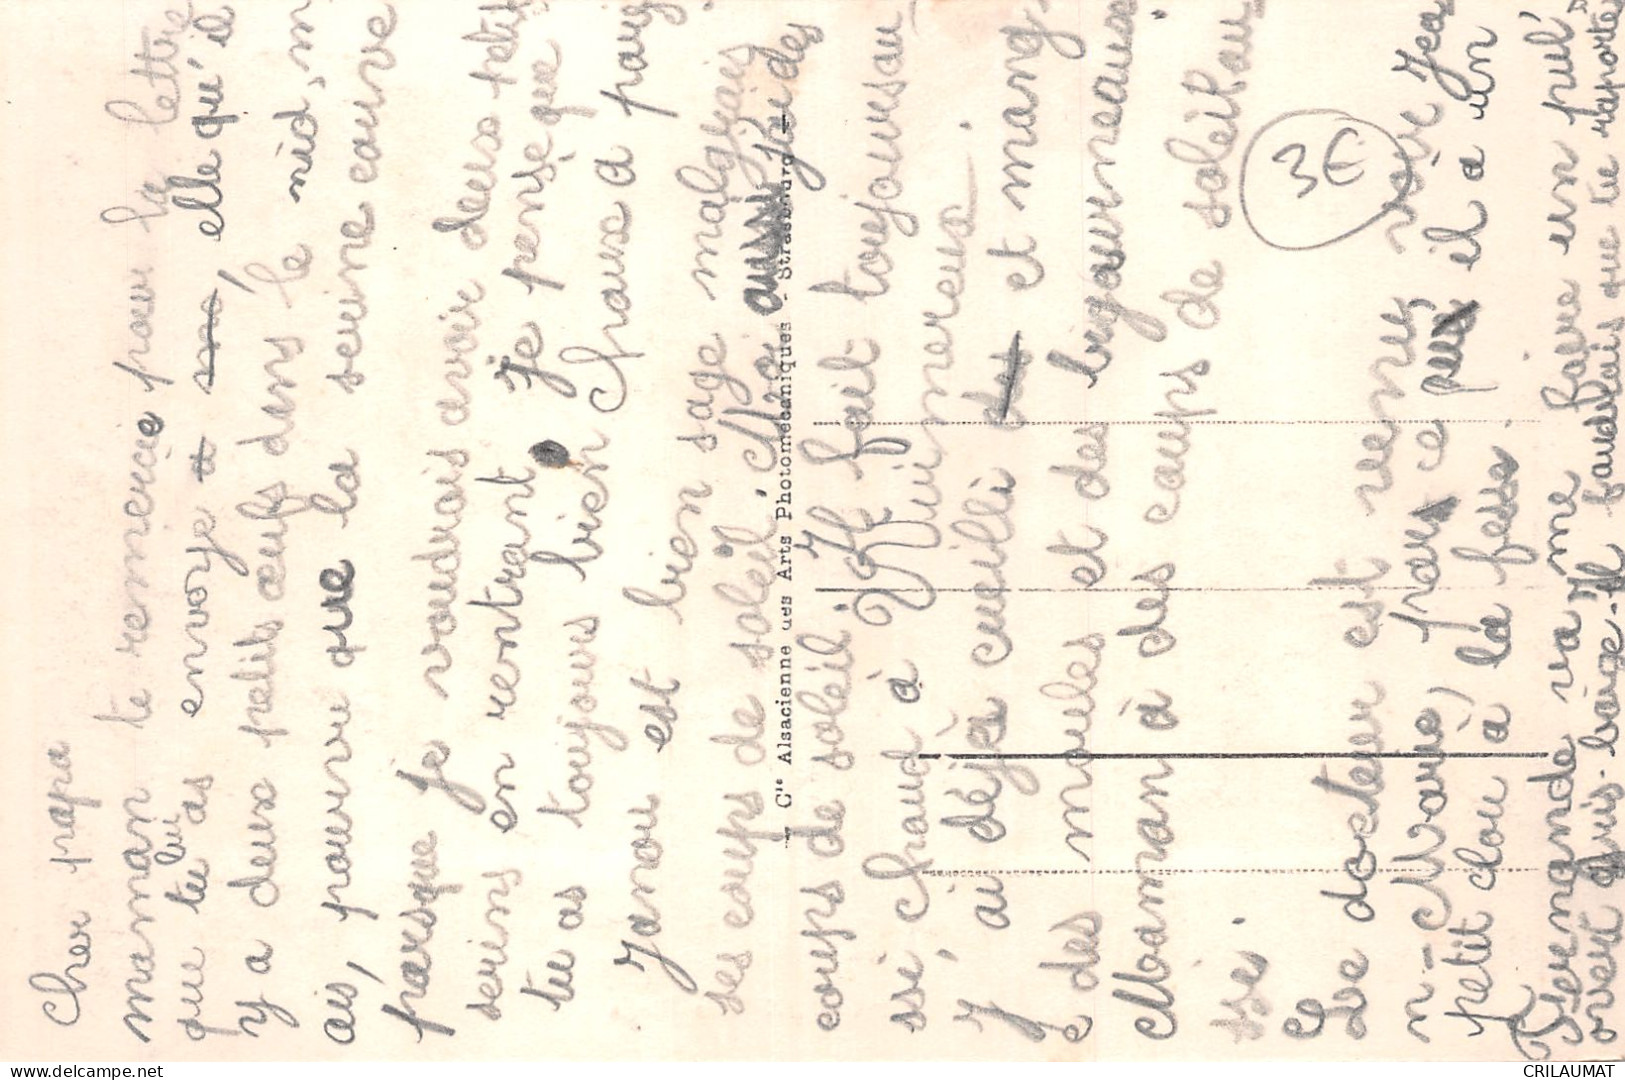 Cher papa
maman te remercie pour la lettre
que tu lui as envoye elle qu'il
y a deux petits œufs dans le nid, m
ais, pauvre que la serine couve
parsque je voudrais avoir deux petits
serins en rentrant je pense que
tu as toujours bien chaux a paris
Janou est bien sage malgrais
ses coups de soleil. aussi des
coups de soleil. Il fait toujours au
ssi chaud à Wimereux.
J'ai déjà cueilli des et mang
é des moules et des bigourneause
Maman à des coups de soleil au
ssi.
Le docteur est venu voir Jea
n-Marie, ce il a un
petit clou à la fesse.
Fernande va me faire un pul'
overt gris-baige. Il faudrais que tu raporte
Cie Alsacienne des Arts Photomécaniques - Strasbourg
3€
CRILAUMAT